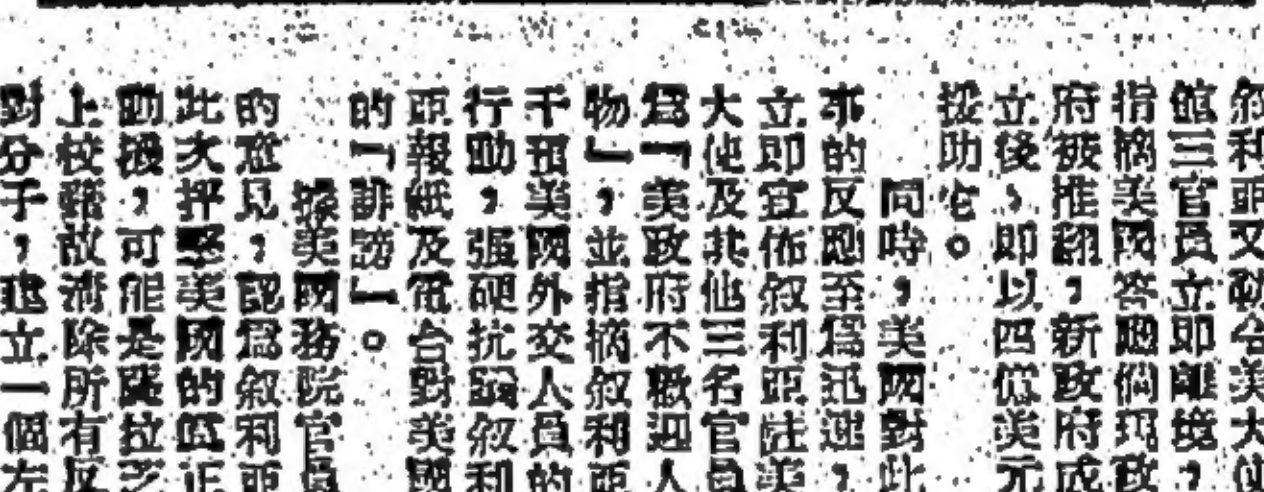 敘利亞又勒令美大使
館三官員立即離境，
指摘美國答應倘現政
府被推翻，新政府成
立後，即以四億美元
援助它。
同時，美國對此
事的反應至為迅速，
立即宣佈敘利亞駐美
大使及其他三名官員
為「美政府不歡迎人
物」，並指摘敘利亞
干預美國外交人員的
行動，強硬抗議敘利
亞報紙及電台對美國
的「誹謗」。
據美國務院官員
的意見，認為敘利亞
此次抨擊美國的真正
動機，可能是薩拉
上校藉故清除所有反
對分子，建立一個左